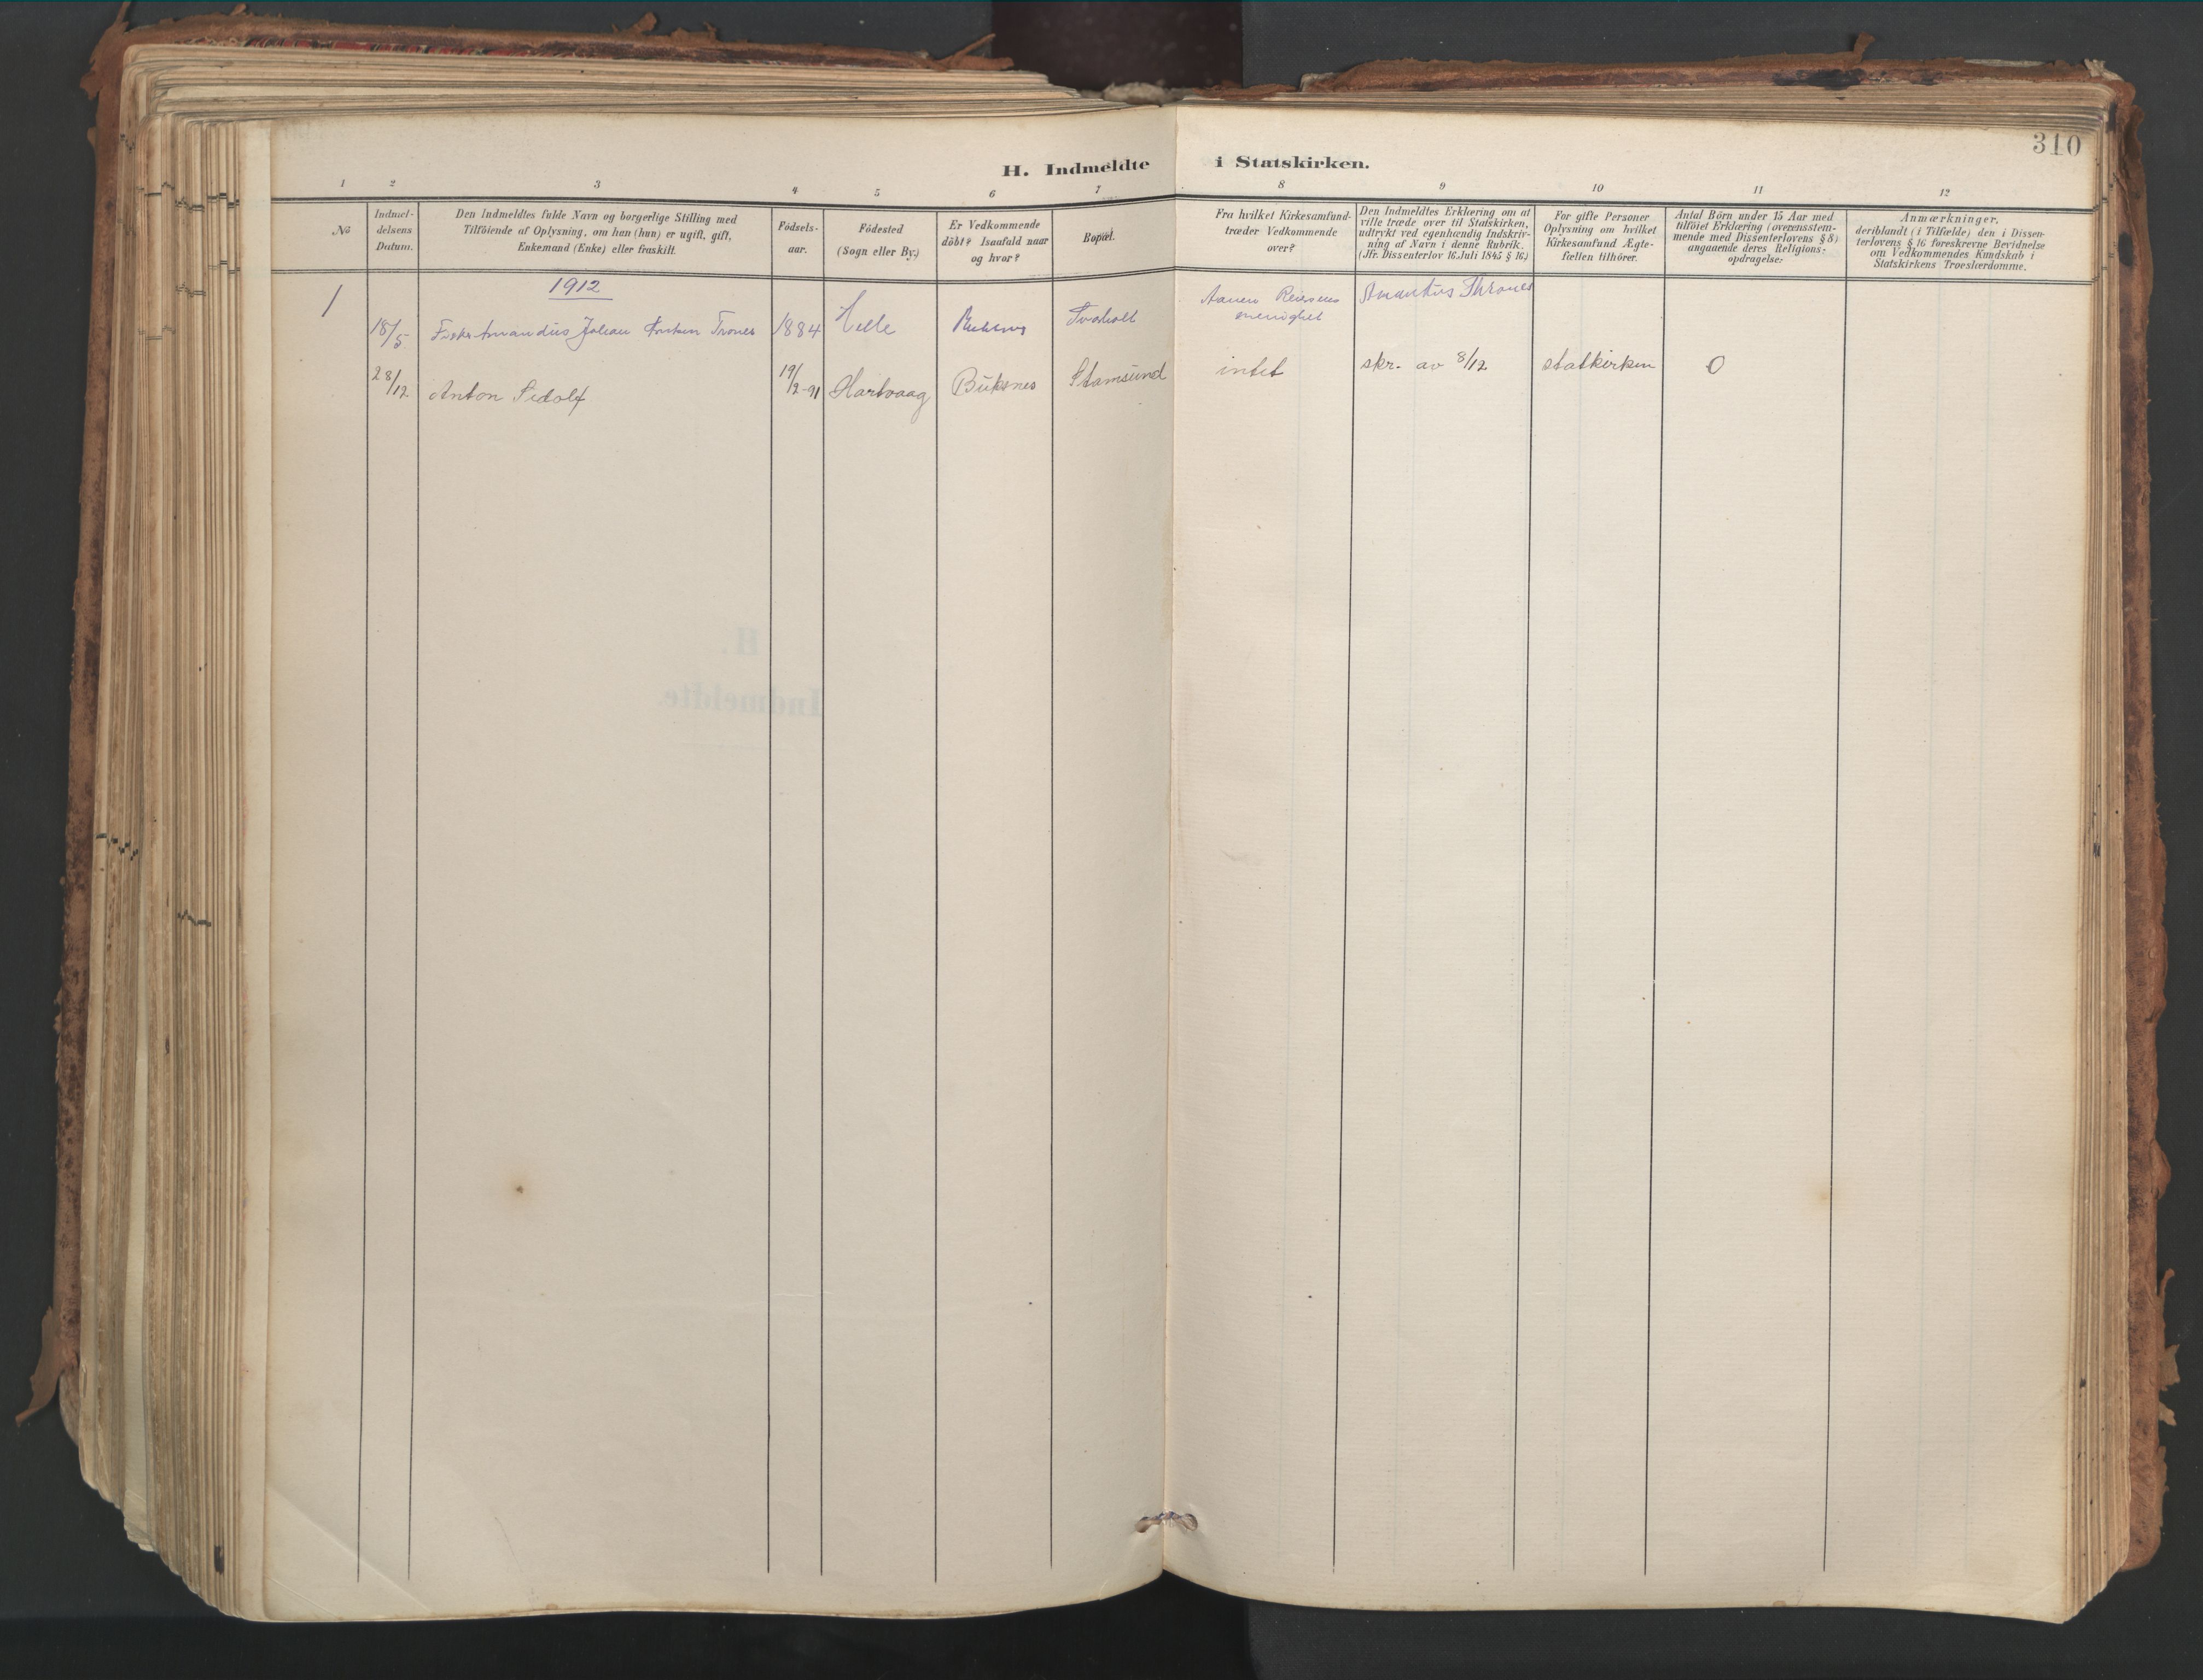 310
H. Indmeldte i Statskirken.
1 2 3 4 5 6 7 8 9 10 11 12
No
Indmel-
delsens
Datum.
Den Indmeldtes fulde Navn og borgerlige Stilling med
Tilföiende af Oplysning, om han (hun) er ugift, gift,
Enkemand (Enke) eller fraskilt.
Födsels-
aar.
Födested
(Sogn eller By.)
Er Vedkommende
döbt? Isaafald naar
og hvor?
Bopæl.
Fra hvilket Kirkesamfund
træder Vedkommende
over?
Den Indmeldtes Erklæring om at
ville træde over til Statskirken,
udtrykt ved egenhændig Indskriv-
ning af Navn i denne Rubrik.
(Jfr. Dissenterlov 16. Juli 1845 § 16.)
For gifte Personer
Oplysning om hvilket
Kirkesamfund Ægte-
fællen tilhörer.
Antal Börn under 15 Aar med
tilföiet Erklæring (overensstem-
mende med Dissenterlovens § 8)
angaaende deres Religions-
opdragelse.
Anmærkninger,
deriblandt (i Tilfælde) den i Dissen-
terlovens § 16 foreskrevne Bevidnelse
om Vedkommendes Kundskab i
Statskirkens Troeslærdomme.
1912
1 18/5 Amandus Johan Trones 1884 Helle Buksnes
menighet
Amandus Thrones
28/12 Anton Sidolf 19/2-91 Hartvaag Buksnes Stamsund intet skr. av 8/12 statkirken 0